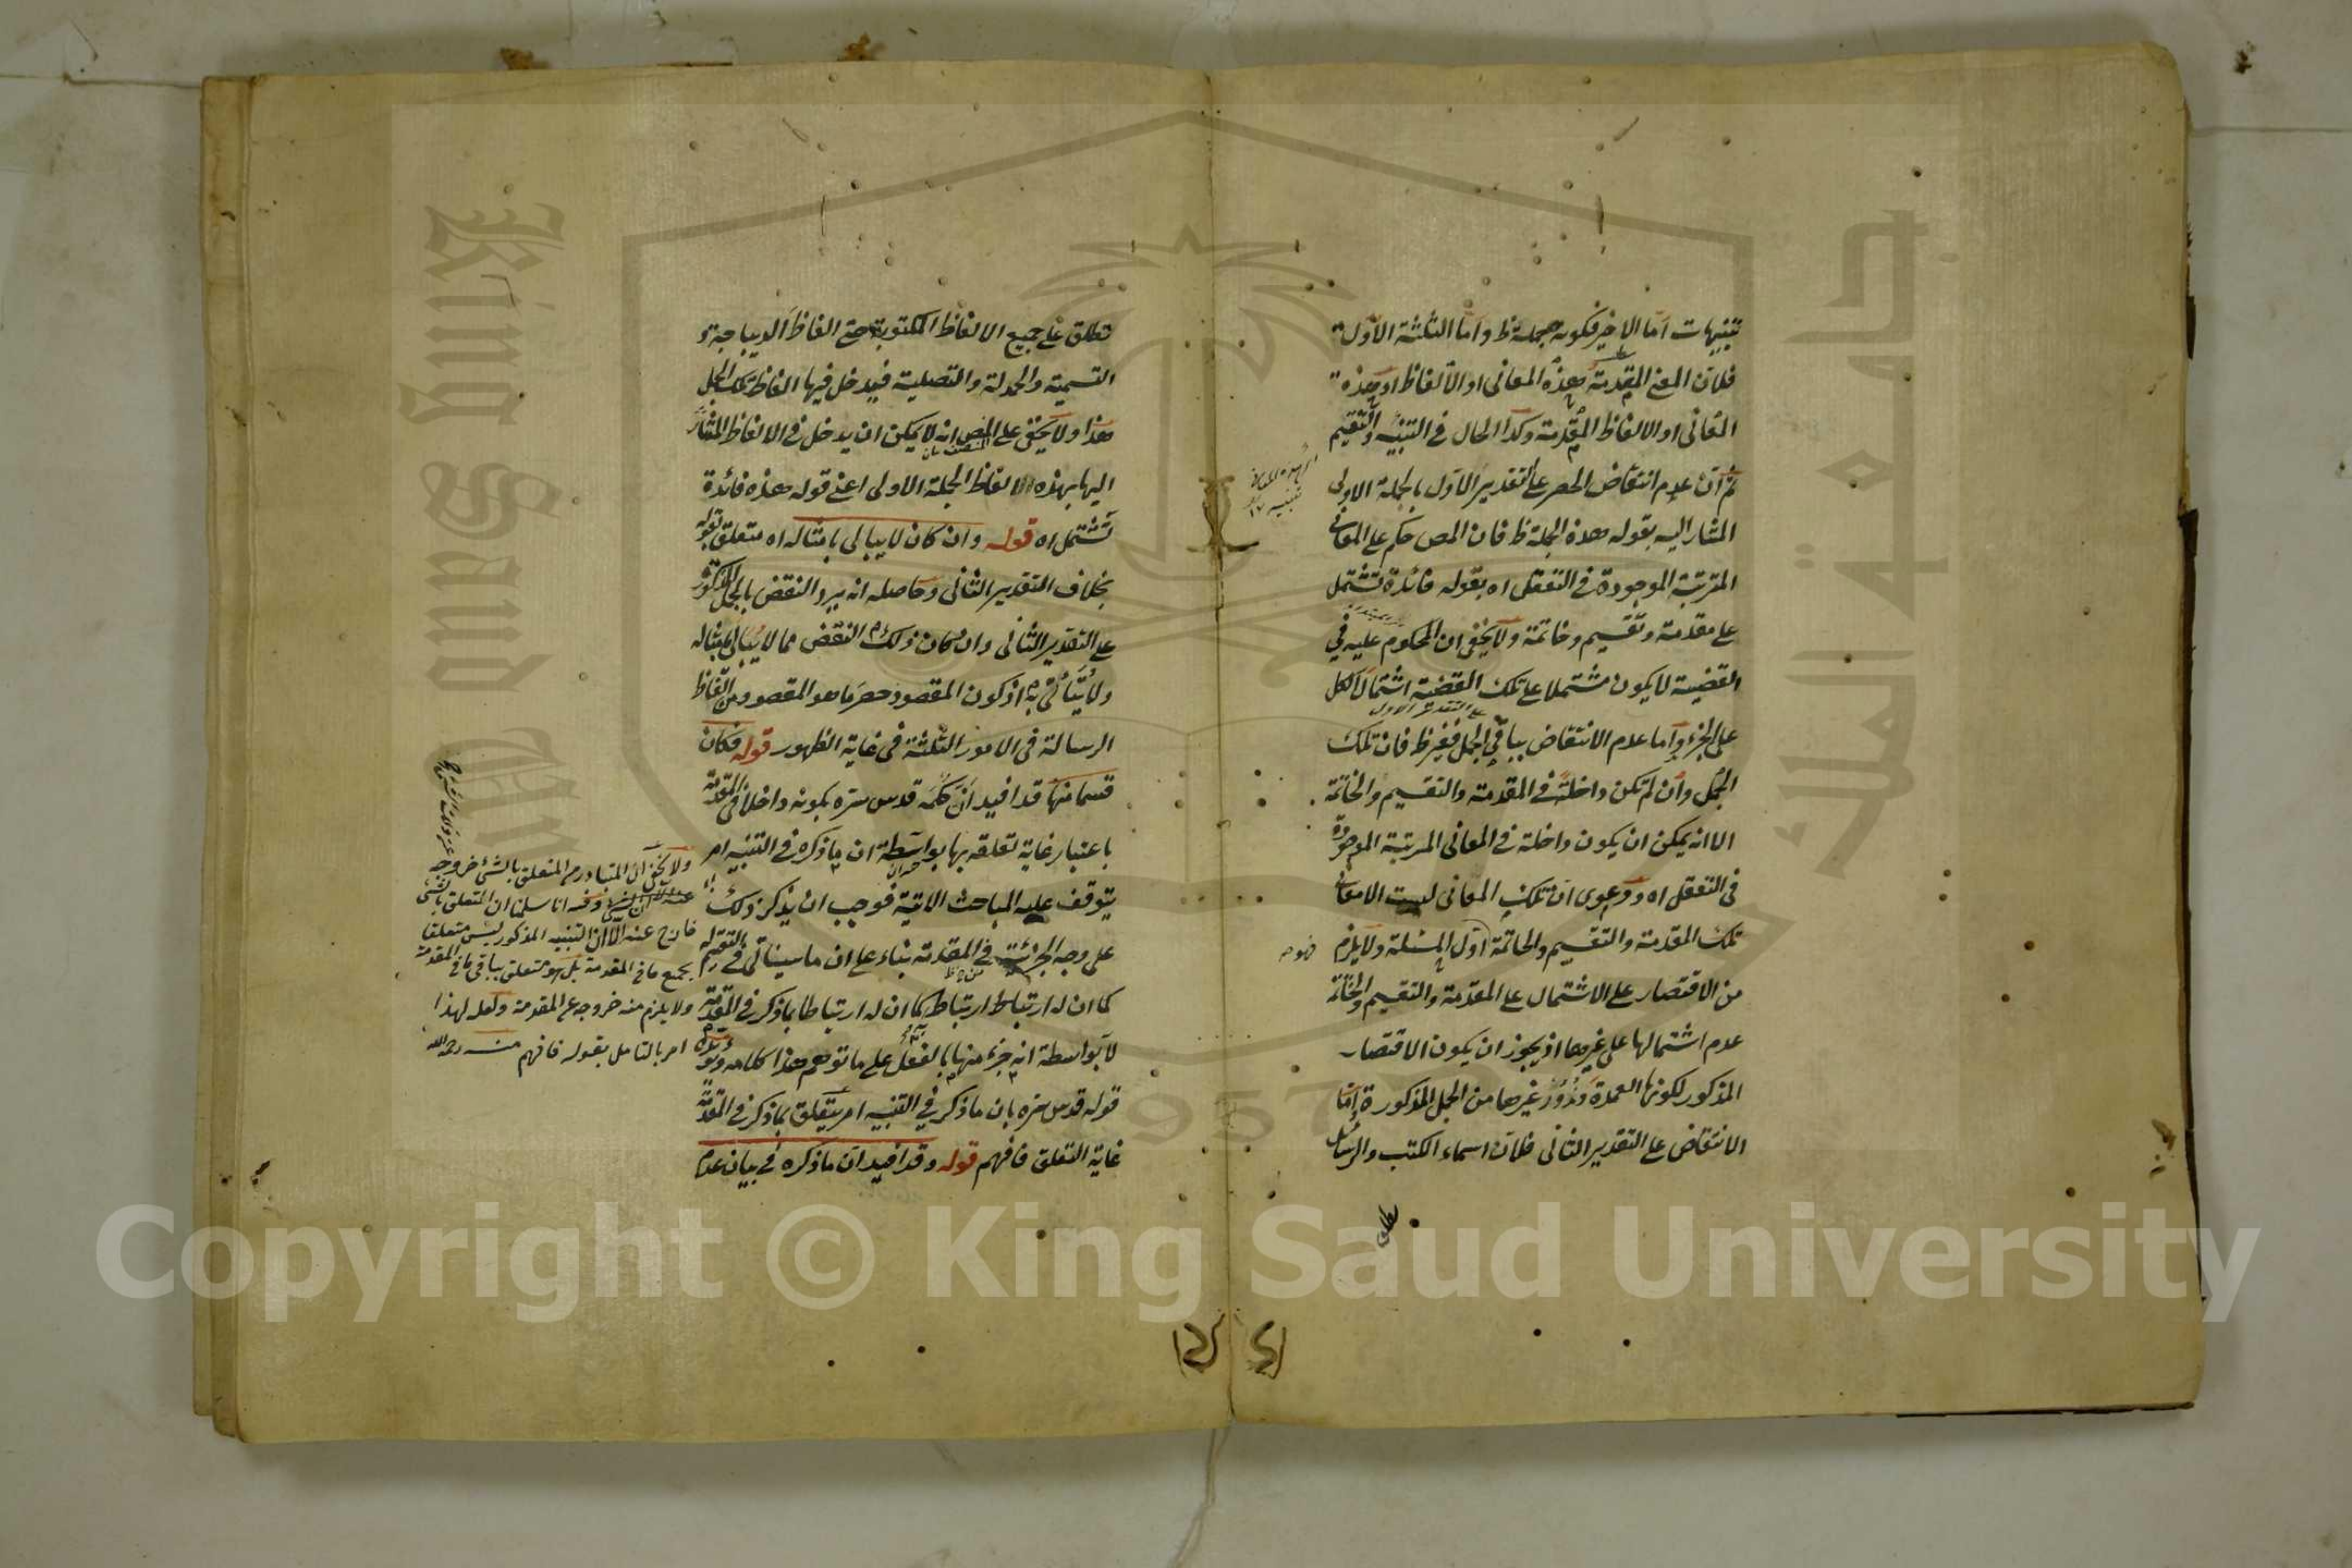 تنبيهات اما الاخير فكونه جملة ظ واما الثلثة الاول
فلان المعنى المقدمة هذه المعانى او الالفاظ او هذه
المعانى او الالفاظ المقدمة وكذا الحال فى التنبيه والتقسيم
ثم ان عدم انتقاض الحصر على التقدير الاول بالجملة الاولى
المشار اليه بقوله هذه الجملة ظ فان المص حكم على المعانى
المترتبة الموجودة فى التعقل اه بقوله فائدة تشتمل
على مقدمة وتقسيم وخاتمة ولا يخفى ان المحكوم عليه فى
القضية لا يكون مشتملا على تلك القضية اشتمال الكل
على التقدير الاول
على الجزء واما عدم الانتقاض بباقى الجمل فغير ظ فان تلك
الجمل وان لم تكن داخلة فى المقدمة والتقسيم والخاتمة
الا انه يمكن ان يكون داخلة فى المعانى المرتبة الموجودة
فى التعقل اه ودعوى ان تلك المعانى ليست الا معانى
تلك المقدمة والتقسيم والخاتمة اول المسئلة ولا يلزم
من الاقتصار على الاشتمال على المقدمة والتقسيم والخاتمة
عدم اشتمالها على غيرها اذ يجوز ان يكون الاقتصار
المذكور لكونها العمدة دون غيرها من الجمل المذكورة اما
الانتقاض على التقدير الثانى فلان اسماء الكتب والرسائل
تطلق
تطلق على جميع الالفاظ المكتوبة حتى الفاظ الديباجة و
التسمية والحمدلة والتصلية فيدخل فيها الفاظ تلك الجمل
هذا ولا يخفى على المنصف انه لا يمكن ان يدخل فى الالفاظ المشار
اليها بهذه الالفاظ الجملة الاولى اعنى قوله هذه فائدة
تشتمل اه قوله وان كان لا يبالى بامثاله اه متعلق بقوله
بخلاف التقدير الثانى وحاصله انه يرد النقض بالجمل المذكور
على التقدير الثانى وان كان ذلك النقض مما لا يبالى بامثاله
ولا يتأتى به اذ كون المقصود حصر ما هو المقصود من الفاظ
الرسالة فى الامور الثلثة فى غاية الظهور قوله فكان
قسما منها قد افيد ان حكمه قدس سره بكونه داخلا فى المقدمة
باعتبار غاية تعلقه بها بواسطة ان ما ذكره فى التنبيه امر
يتوقف عليه المباحث الاتية فوجب ان يذكر ذلك
على وجه الجزئية فى المقدمة بناء على ان ما سيأتى فى التقسيم
كما ان له ارتباط ارتباط كما ان له ارتباطا بما ذكر فى المقدمة
لا بواسطة انه جزء منها بالفعل على ما توهم هذا كلامه
قوله قدس سره بان ما ذكر فى التنبيه امر يتعلق بما ذكر فى المقدمة
غاية التعلق فافهم قوله وقد افيد ان ما ذكره فى بيان عدم
ولا يخفى ان المتبادر من المتعلق بالشئ خروجه
عنه وفيه انا سلمنا ان المتعلق بالشئ
خارج عنه الا ان التنبيه المذكور ليس متعلقا
بجميع ما فى المقدمة بل هو متعلق بباقى ما فى المقدمة
ولا يلزم منه خروجه عن المقدمة ولعله لهذا
امر بالتامل بقوله فافهم منه رحمه الله
Copyright © King Saud University
King Saud Un
جامعة الملك
1957